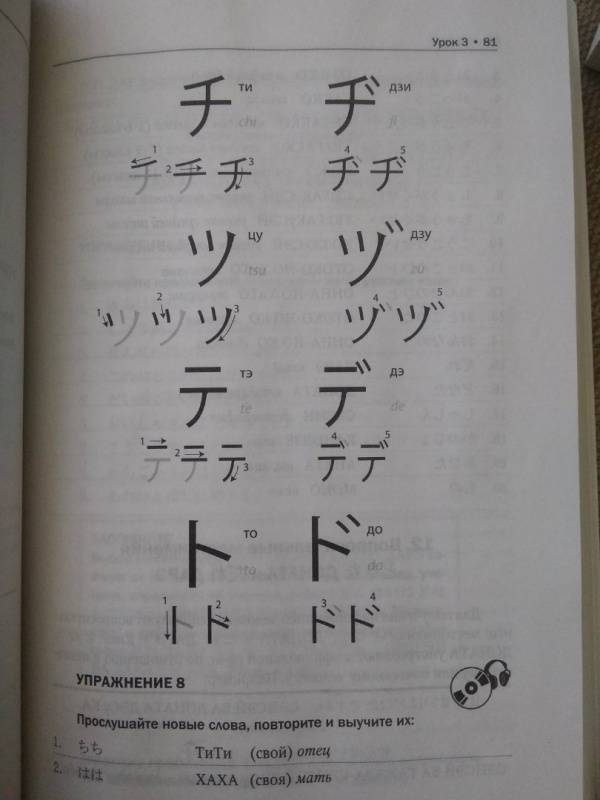 Урок 3 • 81
チ ти ヂ дзи
chi ji
1 2 3 4 5
チ チ チ ヂ ヂ
ツ цу ヅ дзу
tsu zu
1 2 3 4 5
ツ ツ ツ ヅ ヅ
テ тэ デ дэ
te de
1 2 3 4 5
テ テ テ デ デ
ト то ド до
to do
1 2 3 4
ト ト ド ド
УПРАЖНЕНИЕ 8
Прослушайте новые слова, повторите и выучите их:
1. ちち ТиТи (свой) отец
2. はは ХАХА (своя) мать